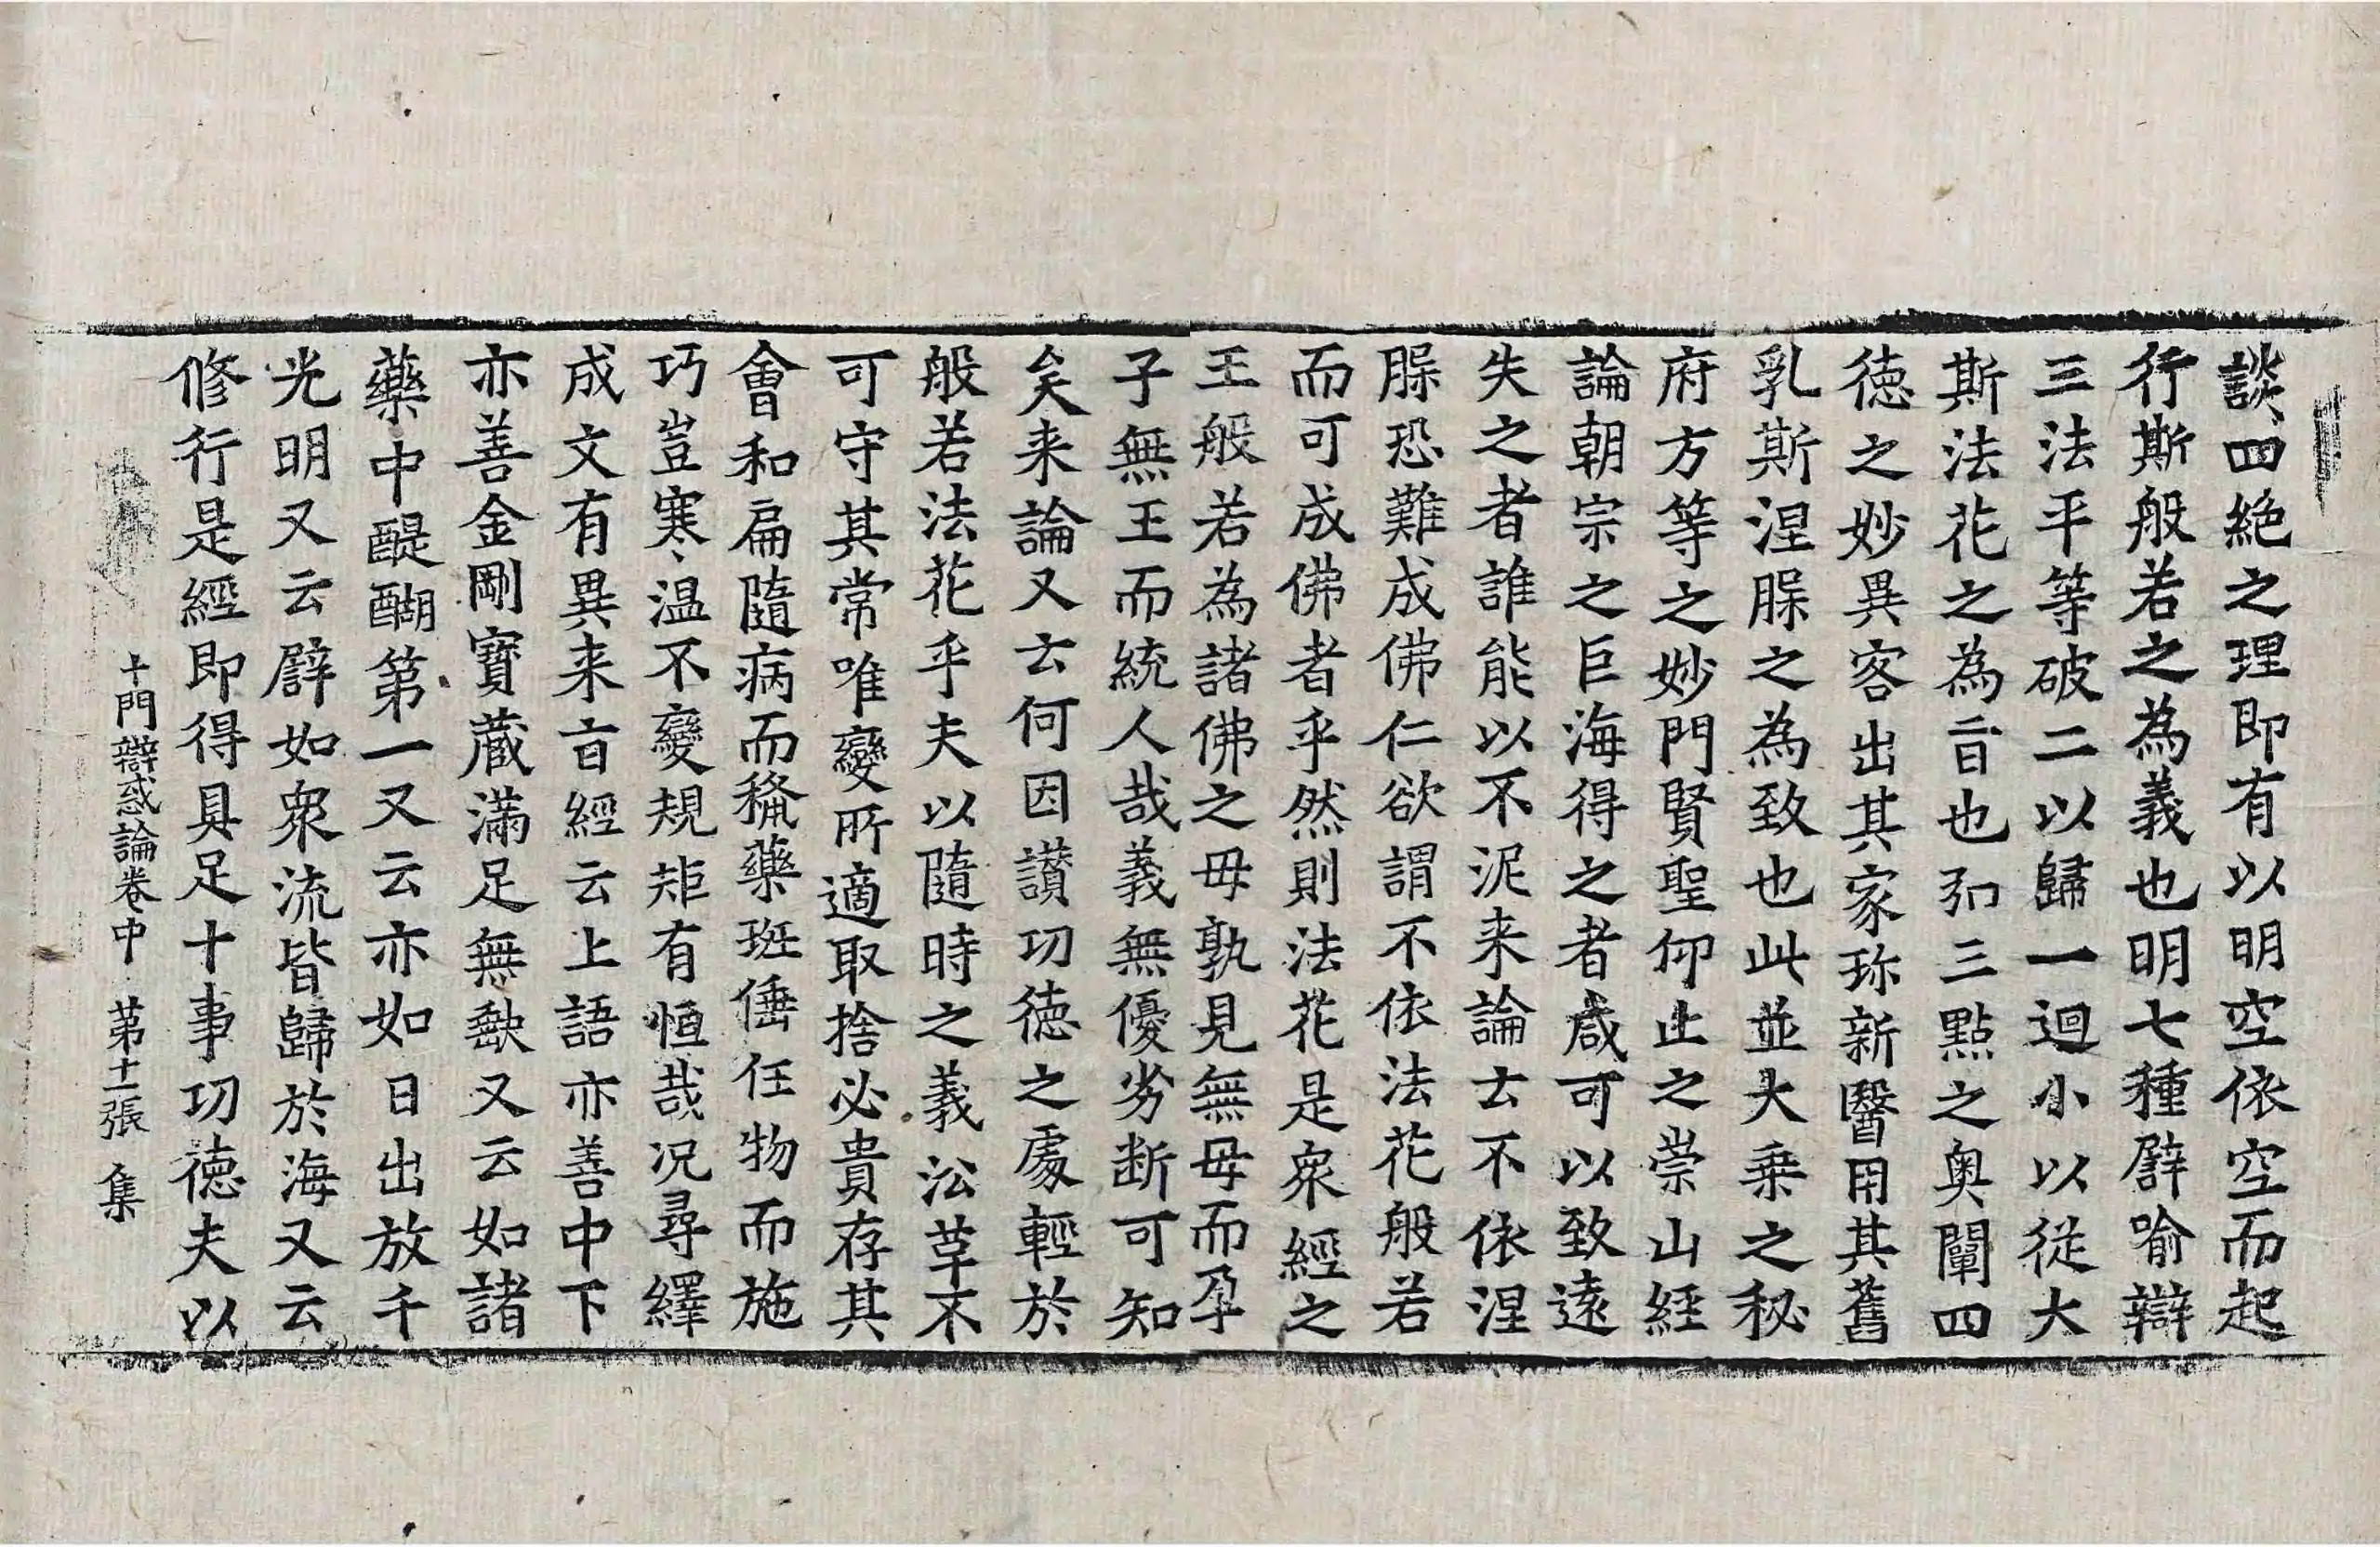 談四絶之理即有以明空依空而起
行斯般若之為義也明七種譬喻辯
三法平等破二以歸一迴小以從大
斯法花之為旨也弘三點之奧闡四
徳之妙異客出其家珎新醫用其舊
乳斯涅槃之為致也此並大乗之秘
府方等之妙門賢聖仰止之崇山經
論朝宗之巨海得之者咸可以致遠
失之者誰能以不泥来論云不依涅
槃恐難成佛仁欲謂不依法花般若
而可成佛者乎然則法花是衆經之
王般若為諸佛之母孰見無母而孕
子無王而統人哉義無優劣断可知
矣来論又云何因讃功徳之處輕於
般若法花乎夫以隨時之義㳂革不
可守其常唯變所適取捨必貴存其
會和扁隨病而㮣藥班倕任物而施
巧豈寒温不變規矩有恒哉况尋繹
成文有異来旨經云上語亦善中下
亦善金剛寶蔵滿足無缺又云如諸
藥中醍醐第一又云亦如日出放千
光明又云譬如衆流皆歸於海又云
修行是經即得具足十事功徳夫以
十門辯惑論卷中 第十一張 集